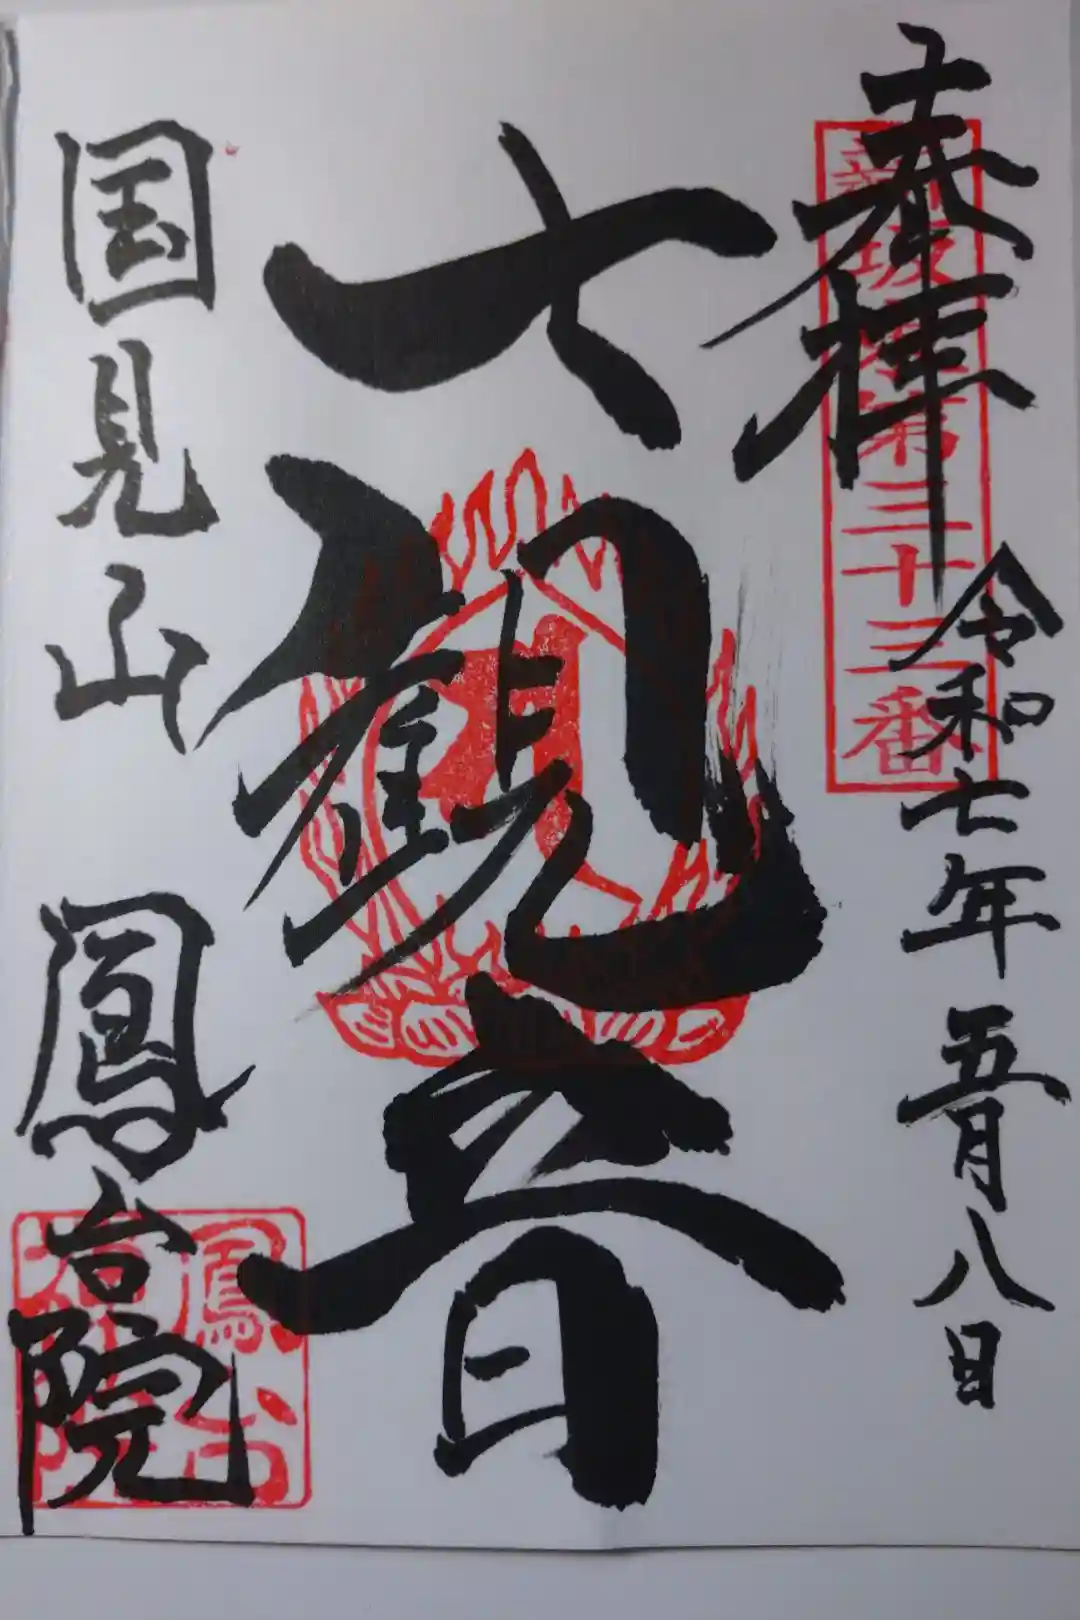 奉拝
新坂東第三十三番
令和七年五月八日
七観音
国見山 鳳台院
鳳台